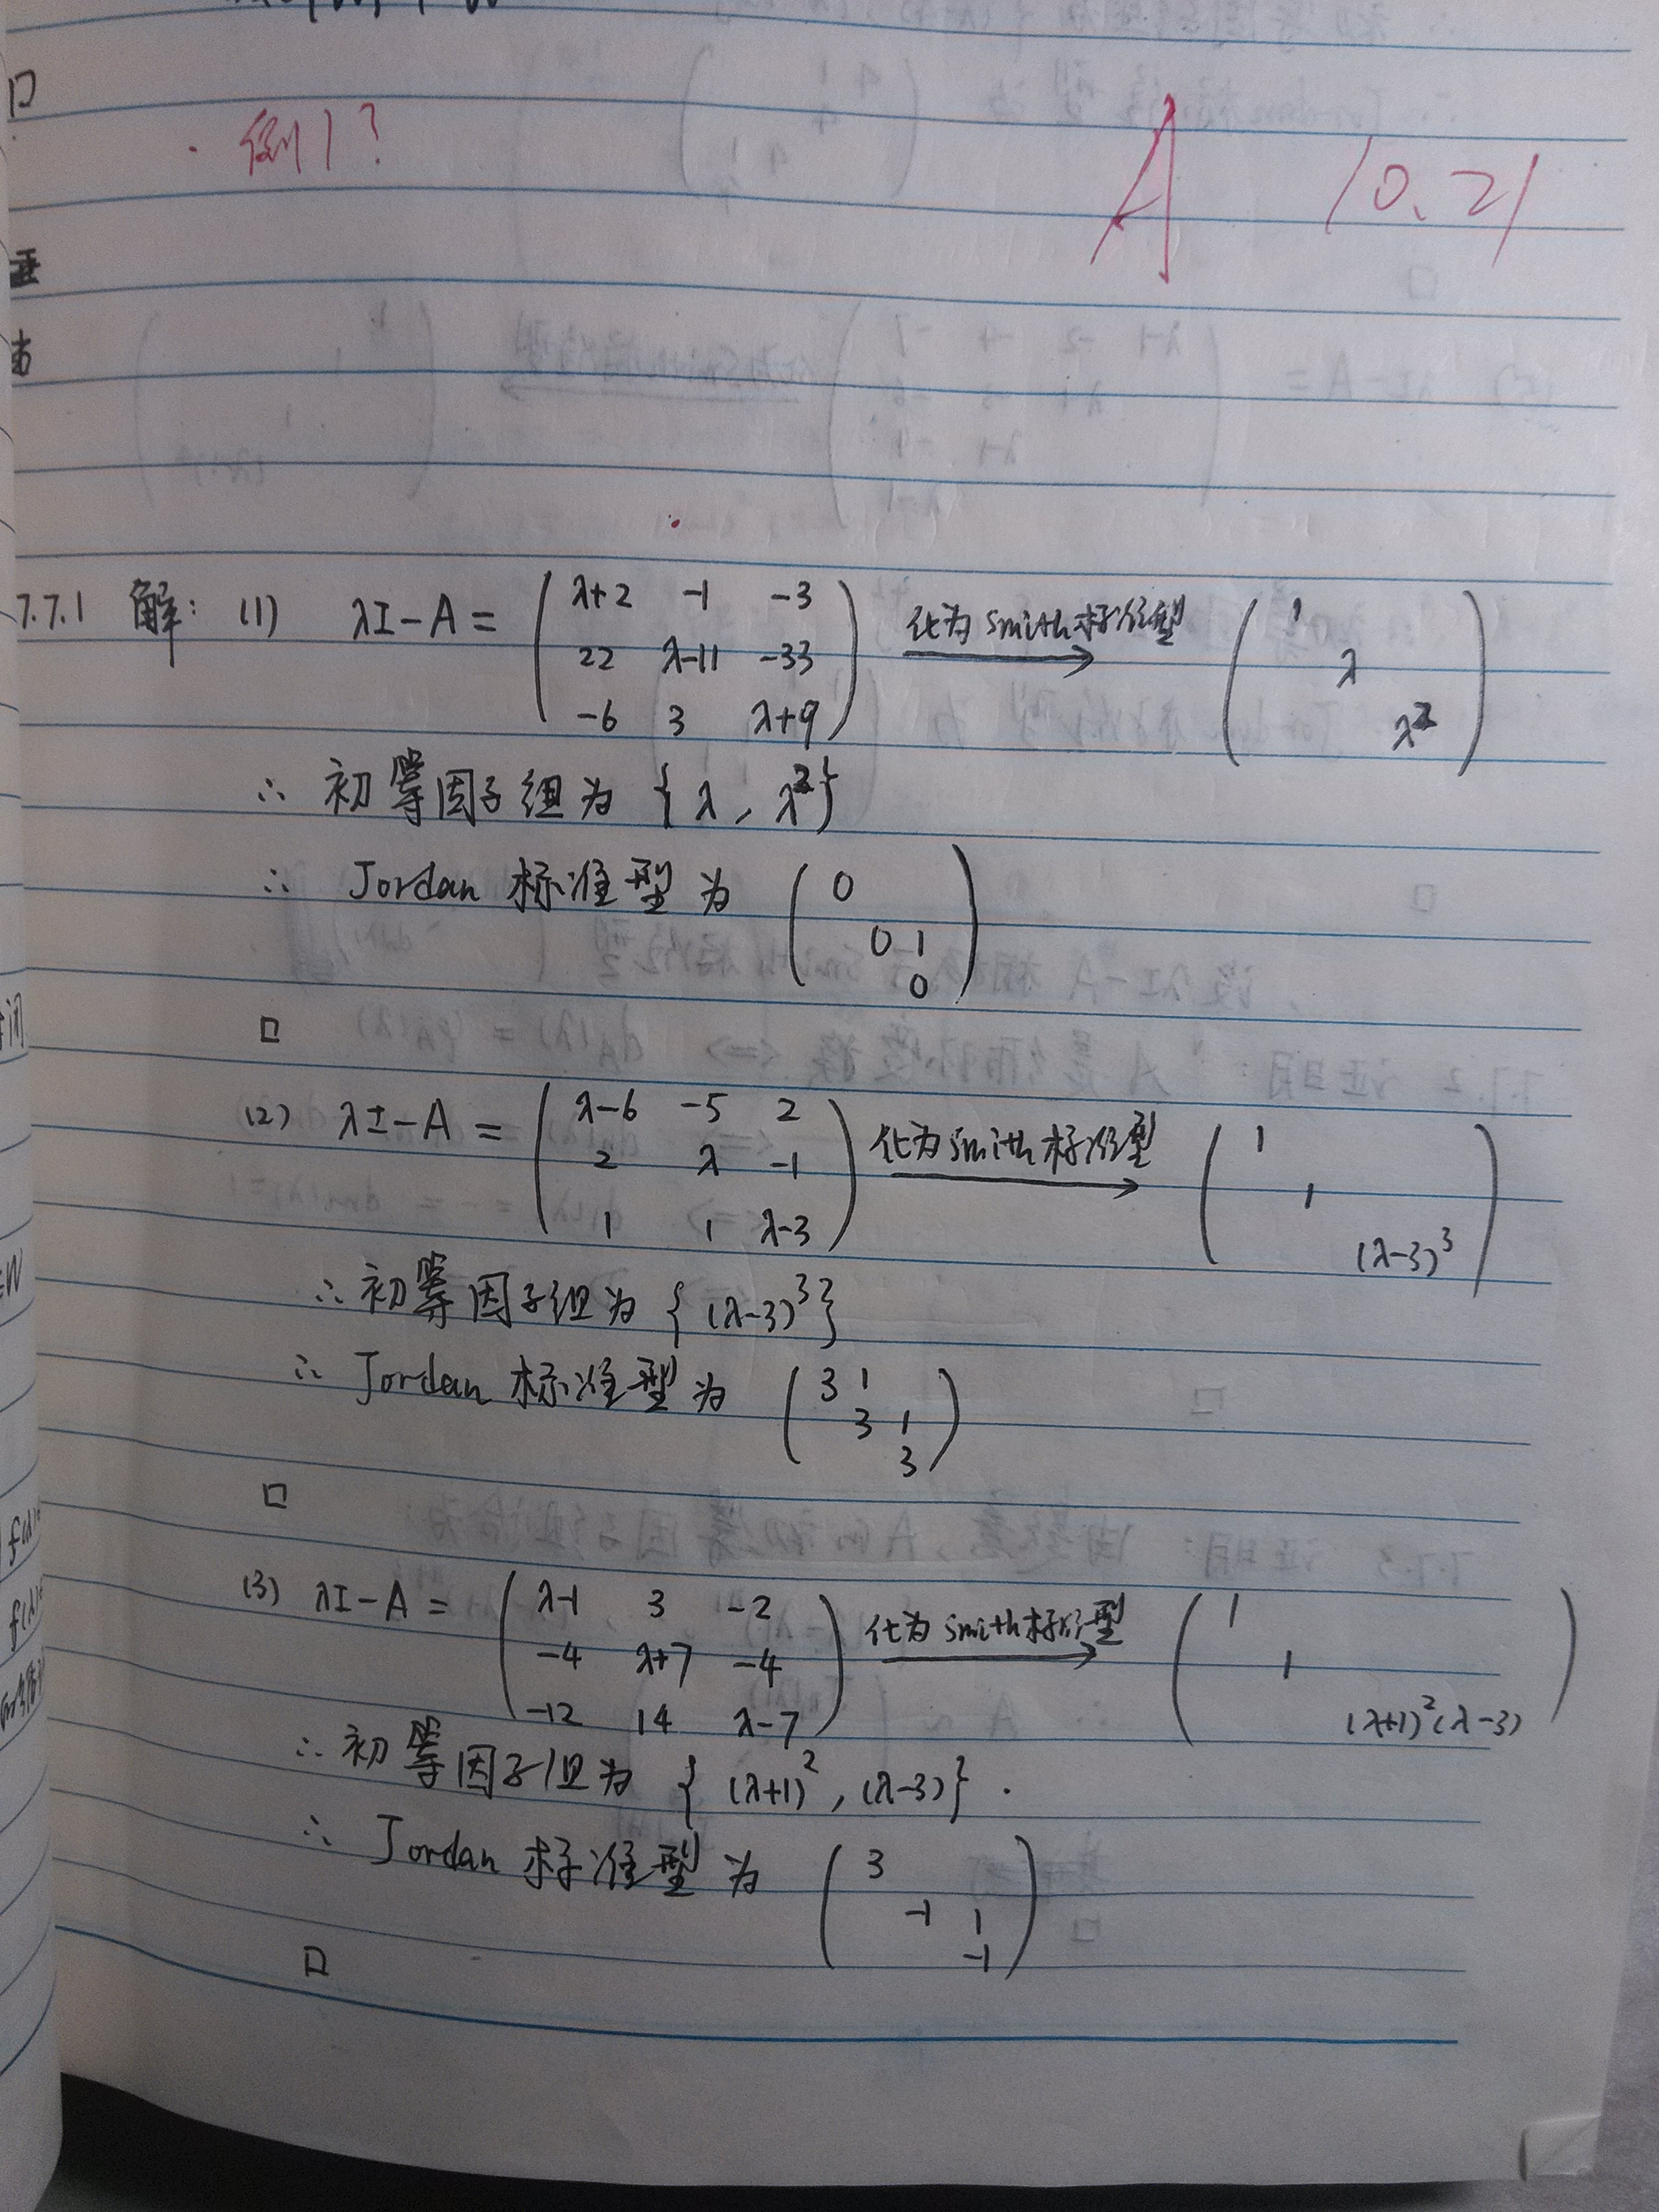 例1?
A 10.21
7.7.1 解: (1) λI-A = ( λ+2 -1 -3
22 λ-11 -33
-6 3 λ+9 ) 化为Smith标准型 → ( 1
λ
λ² )
∴ 初等因子组为 { λ, λ² }
∴ Jordan 标准型为 ( 0
0 1
0 )
□
(2) λI-A = ( λ-6 -5 2
2 λ -1
1 1 λ-3 ) 化为Smith标准型 → ( 1
1
(λ-3)³ )
∴ 初等因子组为 { (λ-3)³ }
∴ Jordan 标准型为 ( 3 1
3 1
3 )
□
(3) λI-A = ( λ-1 3 -2
-4 λ+7 -4
-12 14 λ-7 ) 化为Smith标准型 → ( 1
1
(λ+1)²(λ-3) )
∴ 初等因子组为 { (λ+1)², (λ-3) }.
∴ Jordan 标准型为 ( 3
-1 1
-1 )
□